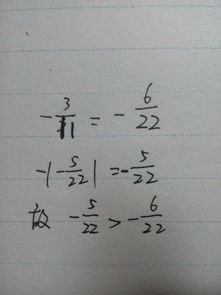 -3/11 = -6/22
-|-5/22| = -5/22
故 -5/22 > -6/22